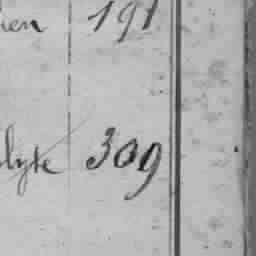 ien 191
lyte 309